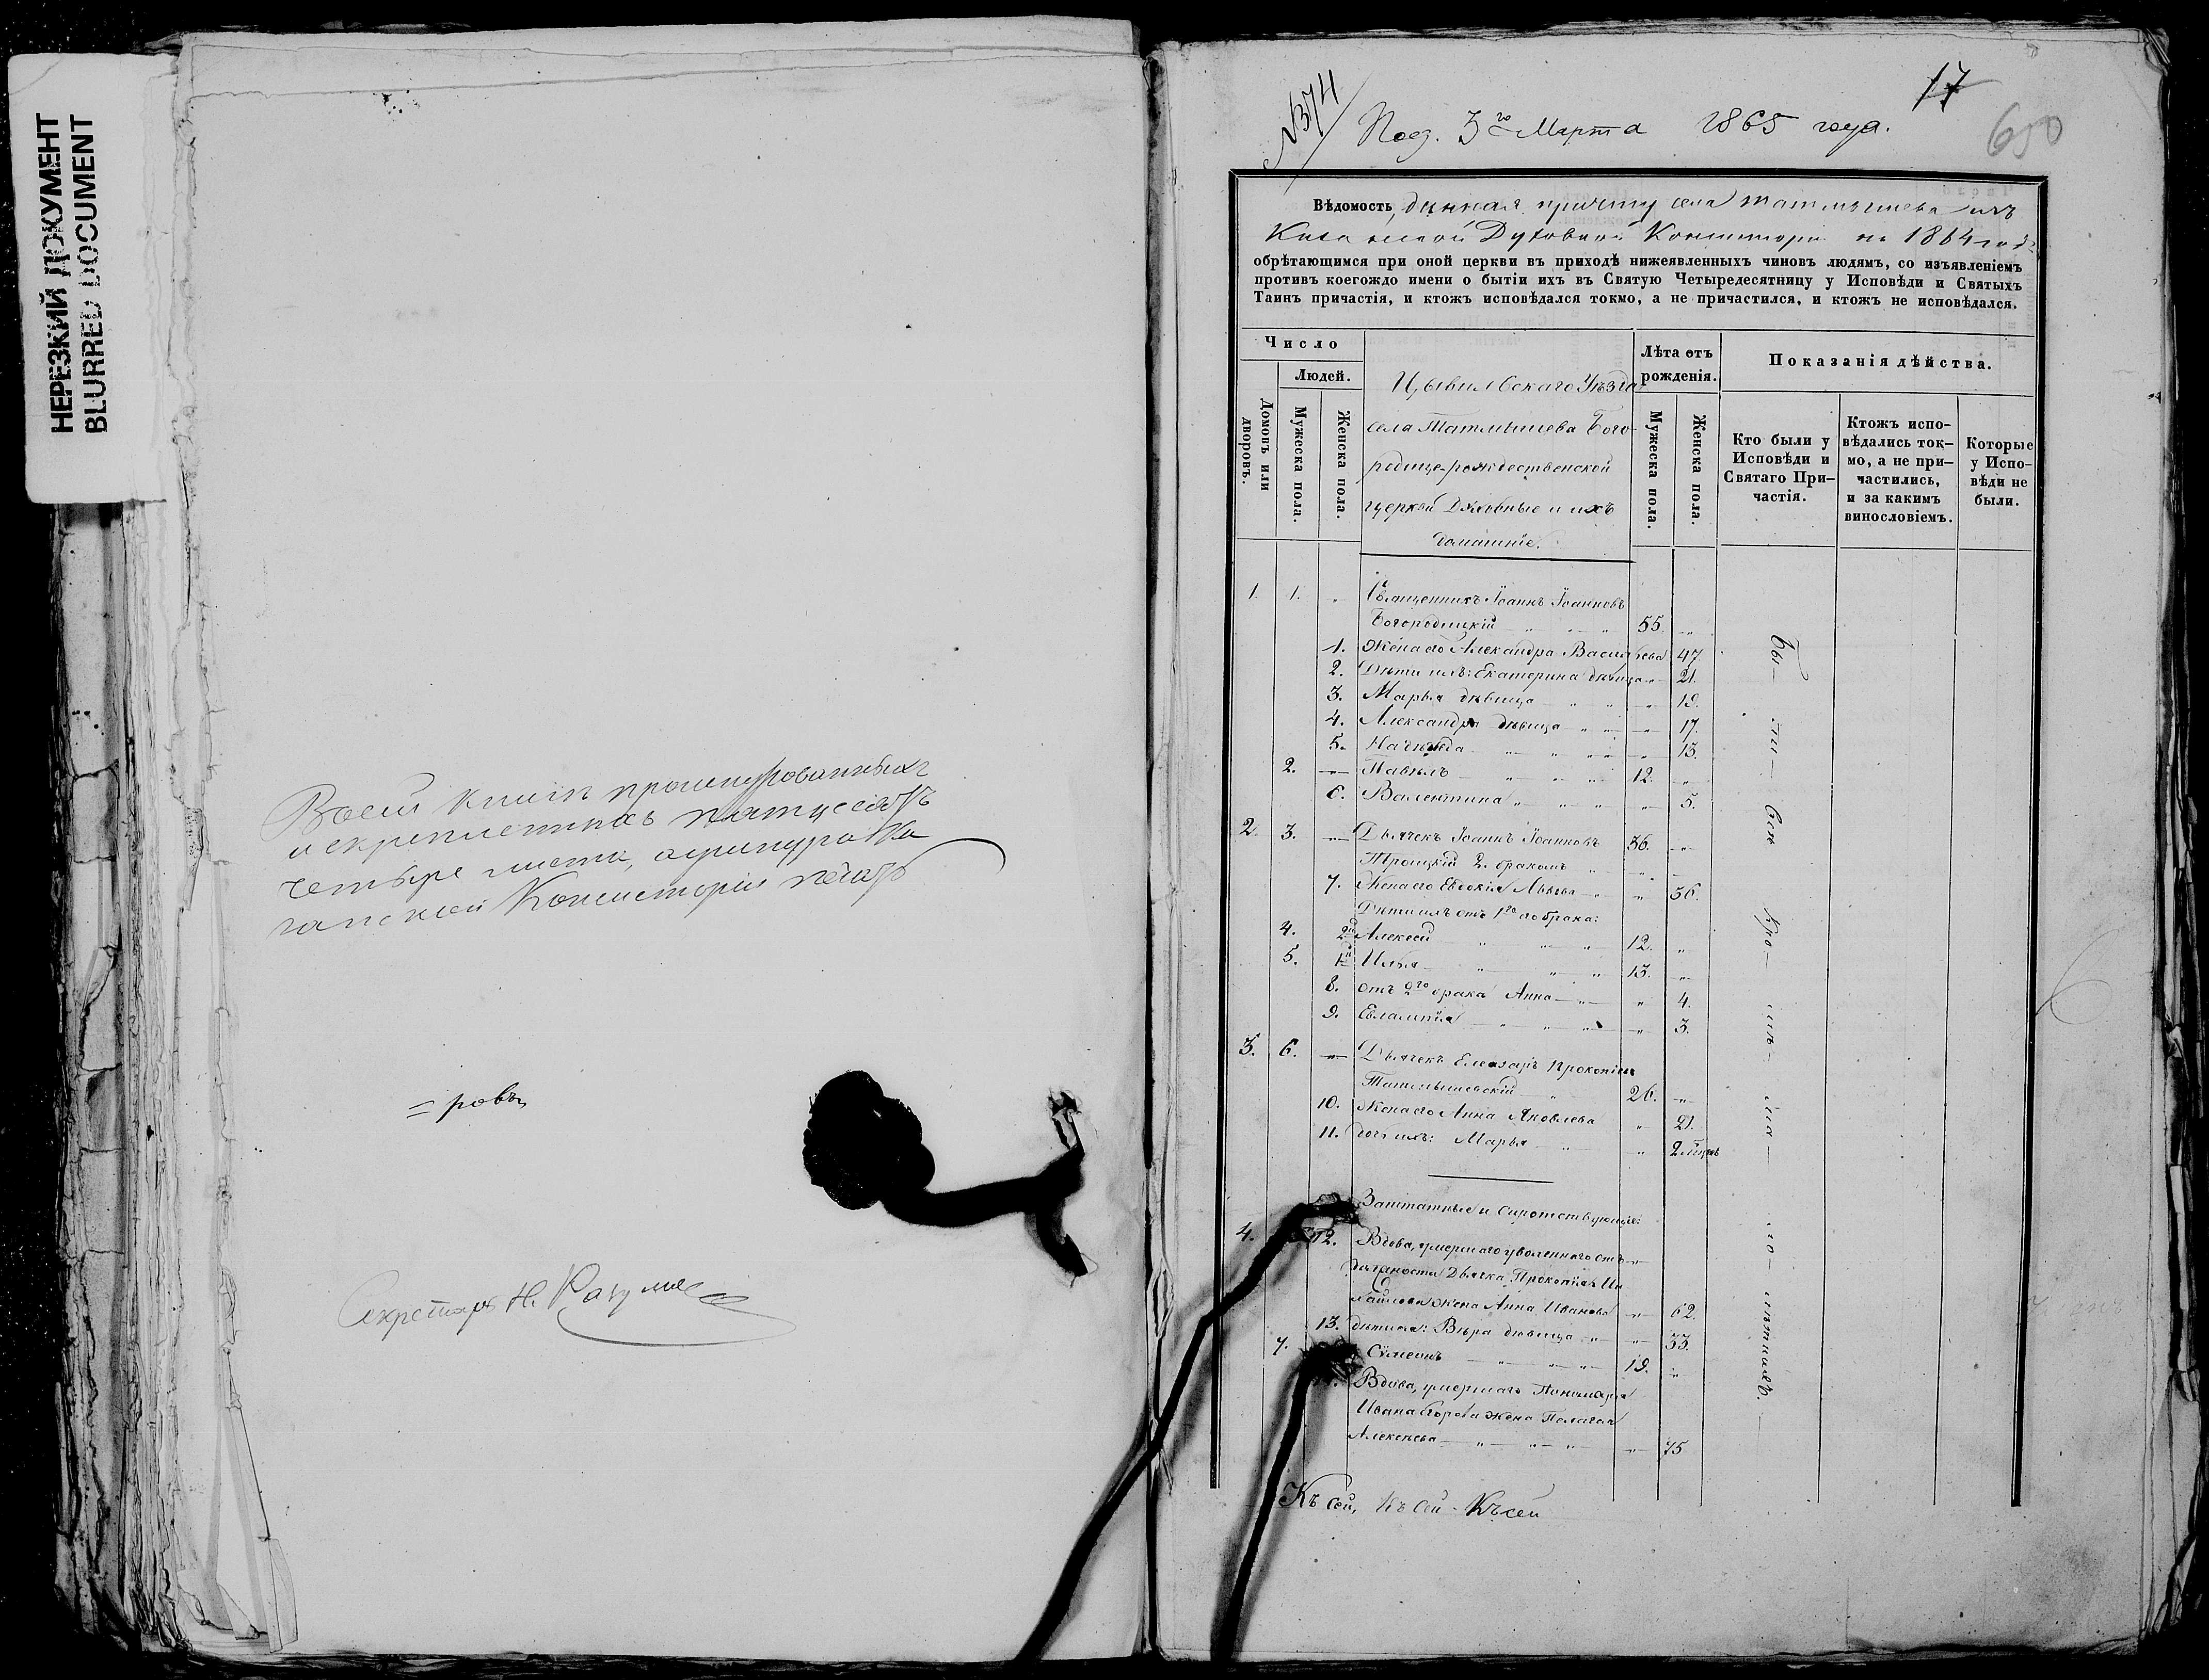 НЕРЕЗКИЙ ДОКУМЕНТ
BLURRED DOCUMENT
Всей книги прошнурованныхъ
и скрепленныхъ пятьдесятъ
четыре листа, а у шнура Ка
занской Консисторіи печать
= ровъ
Секретарь Н. Разумов
№374
Под. 3го Марта 1865 года.
17
650
Вѣдомость, данная причту села Татмышева изъ
Казанской Духовной Консисторіи на 1864 годъ
обрѣтающимся при оной церкви въ приходѣ нижеявленныхъ чиновъ людямъ, со изъявленіемъ
противъ коегождо имени о бытіи ихъ въ Святую Четыредесятницу у Исповѣди и Святыхъ
Таинъ причастія, и ктожъ исповѣдался токмо, а не причастился, и ктожъ не исповѣдался.
Число
Домовъ или дворовъ.
Людей.
Мужеска пола.
Женска пола.
Цывильскаго Уѣзда
села Татмышева Бого-
родице-рождественской
церкви Духовные и ихъ
домашніе.
Лѣта отъ
рожденія.
Мужеска пола.
Женска пола.
Показанія дѣйства.
Кто были у
Исповѣди и
Святаго При-
частія.
Ктожъ испо-
вѣдались ток-
мо, а не при-
частились,
и за какимъ
винословіемъ.
Которые
у Испо-
вѣди не
были.
1. 1. Священникъ Іоаннъ Іоанновъ
Богородицкій 55.
1. Жена его Александра Васильева 47.
2. Дѣти ихъ: Екатерина дѣвица 21.
3. Марья дѣвица 19.
4. Александра дѣвица 17.
5. Надежда 13.
2. Павелъ 12.
6. Валентина 5.
2. 3. Дьячекъ Іоаннъ Іоанновъ 36.
Троицкій 2. бракомъ
7. Жена его Евдокія Львова 36.
Дѣти ихъ отъ 1го его брака:
4. 2й Алексей 12.
5. 1й Илья 13.
8. отъ 2го брака Анна 4.
9. Евлампія 3.
3. 6. Дьячекъ Елеазаръ Прокопіевъ
Татмышевскій 26.
10. Жена его Анна Яковлева 21.
11. дочь ихъ: Марья 2 мѣсяцъ
Заштатные и Сиротствующіе:
4. 12. Вдова, умершаго уволеннаго отъ
должности Дьячка Прокопія Ми
хайлова жена Анна Иванова 62.
13. дѣти ея: Вѣра дѣвица 33.
7. Симеонъ 19.
Вдова, умершаго Пономаря
Ивана Егорова жена Пелагея
Алексѣева 75
Бы-
ли-
всѣ
кро-
мѣ-
ма-
ло-
лѣтныхъ.
Къ сей, Къ сей - Къ сей